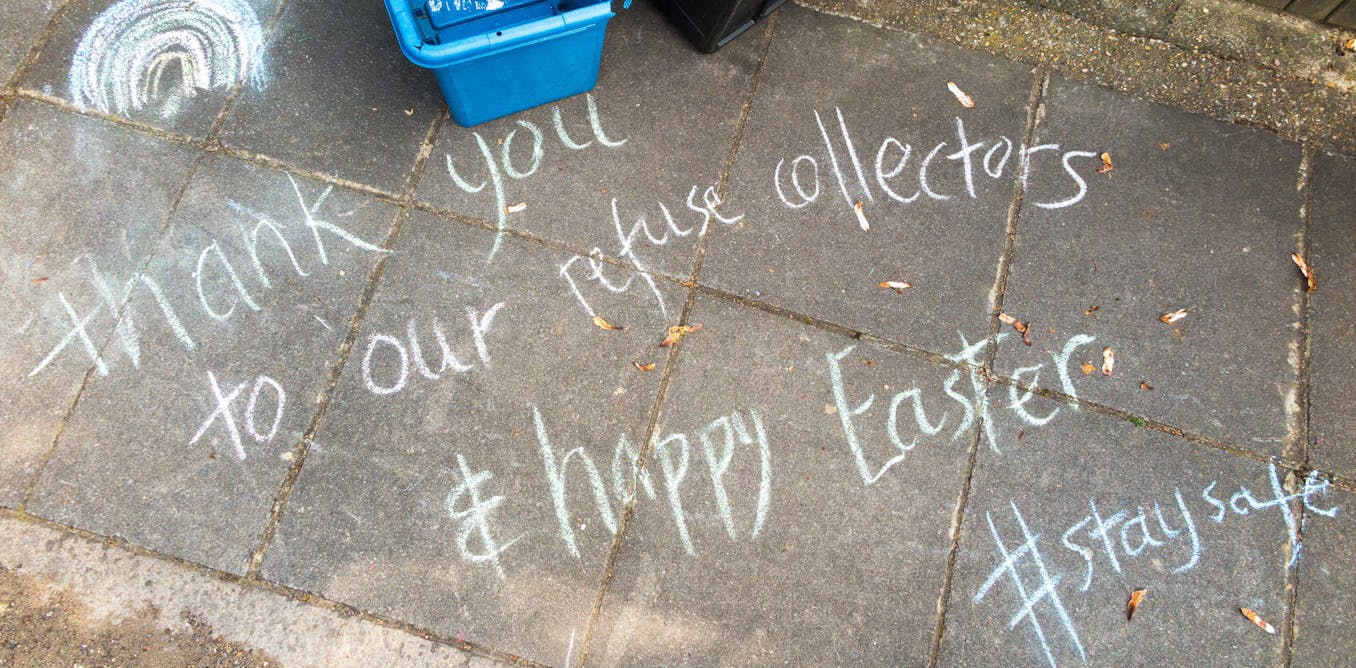 thank you
to our refuse collectors
& happy Easter
#staysafe